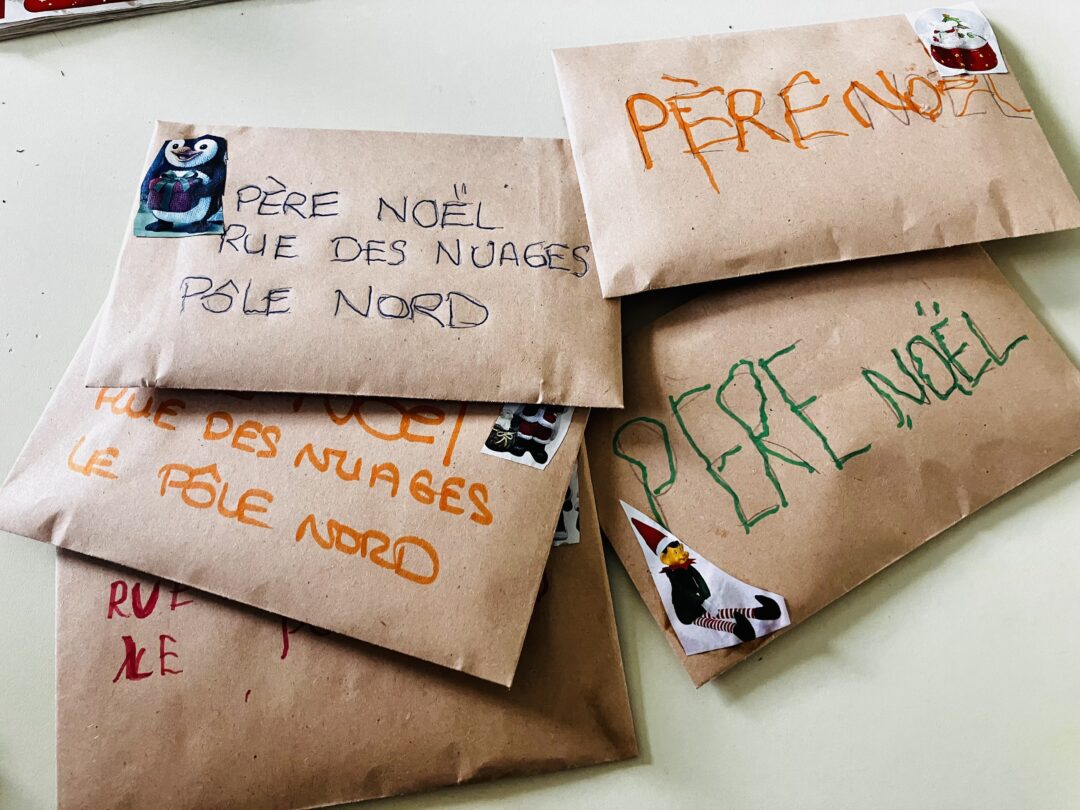 PÈRE NOËL
RUE DES NUAGES
PÔLE NORD
PÈRE NOËL
NOËl
RUE DES NUAGES
LE PÔLE NORD
PERE NOËL
RUE
LE